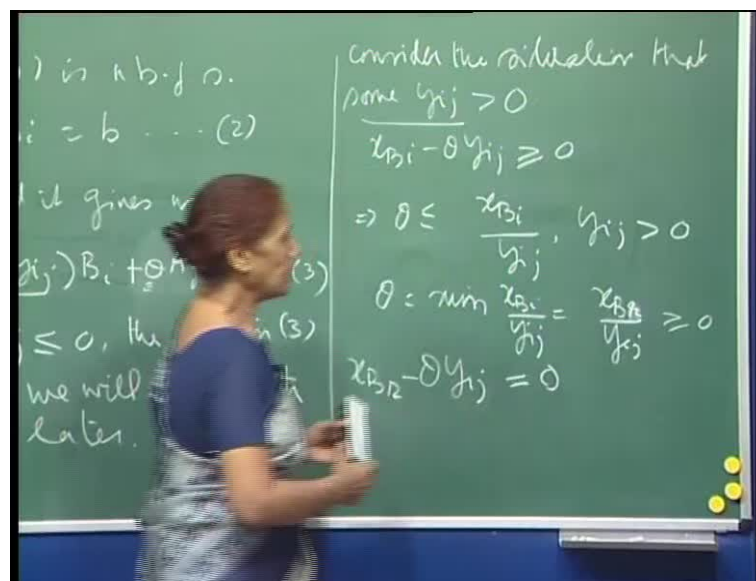 ) is a b.f s.
i = b ---- (2)
it gives
yij)Bi + θ A (3)
≤ 0, the in (3)
we will
later.
consider the situation that
some yij > 0
xBi - θyij ≥ 0
⇒ θ ≤ xBi / yij , yij > 0
θ = min xBi / yij = xBr / yrj ≥ 0
xBr - θyij = 0